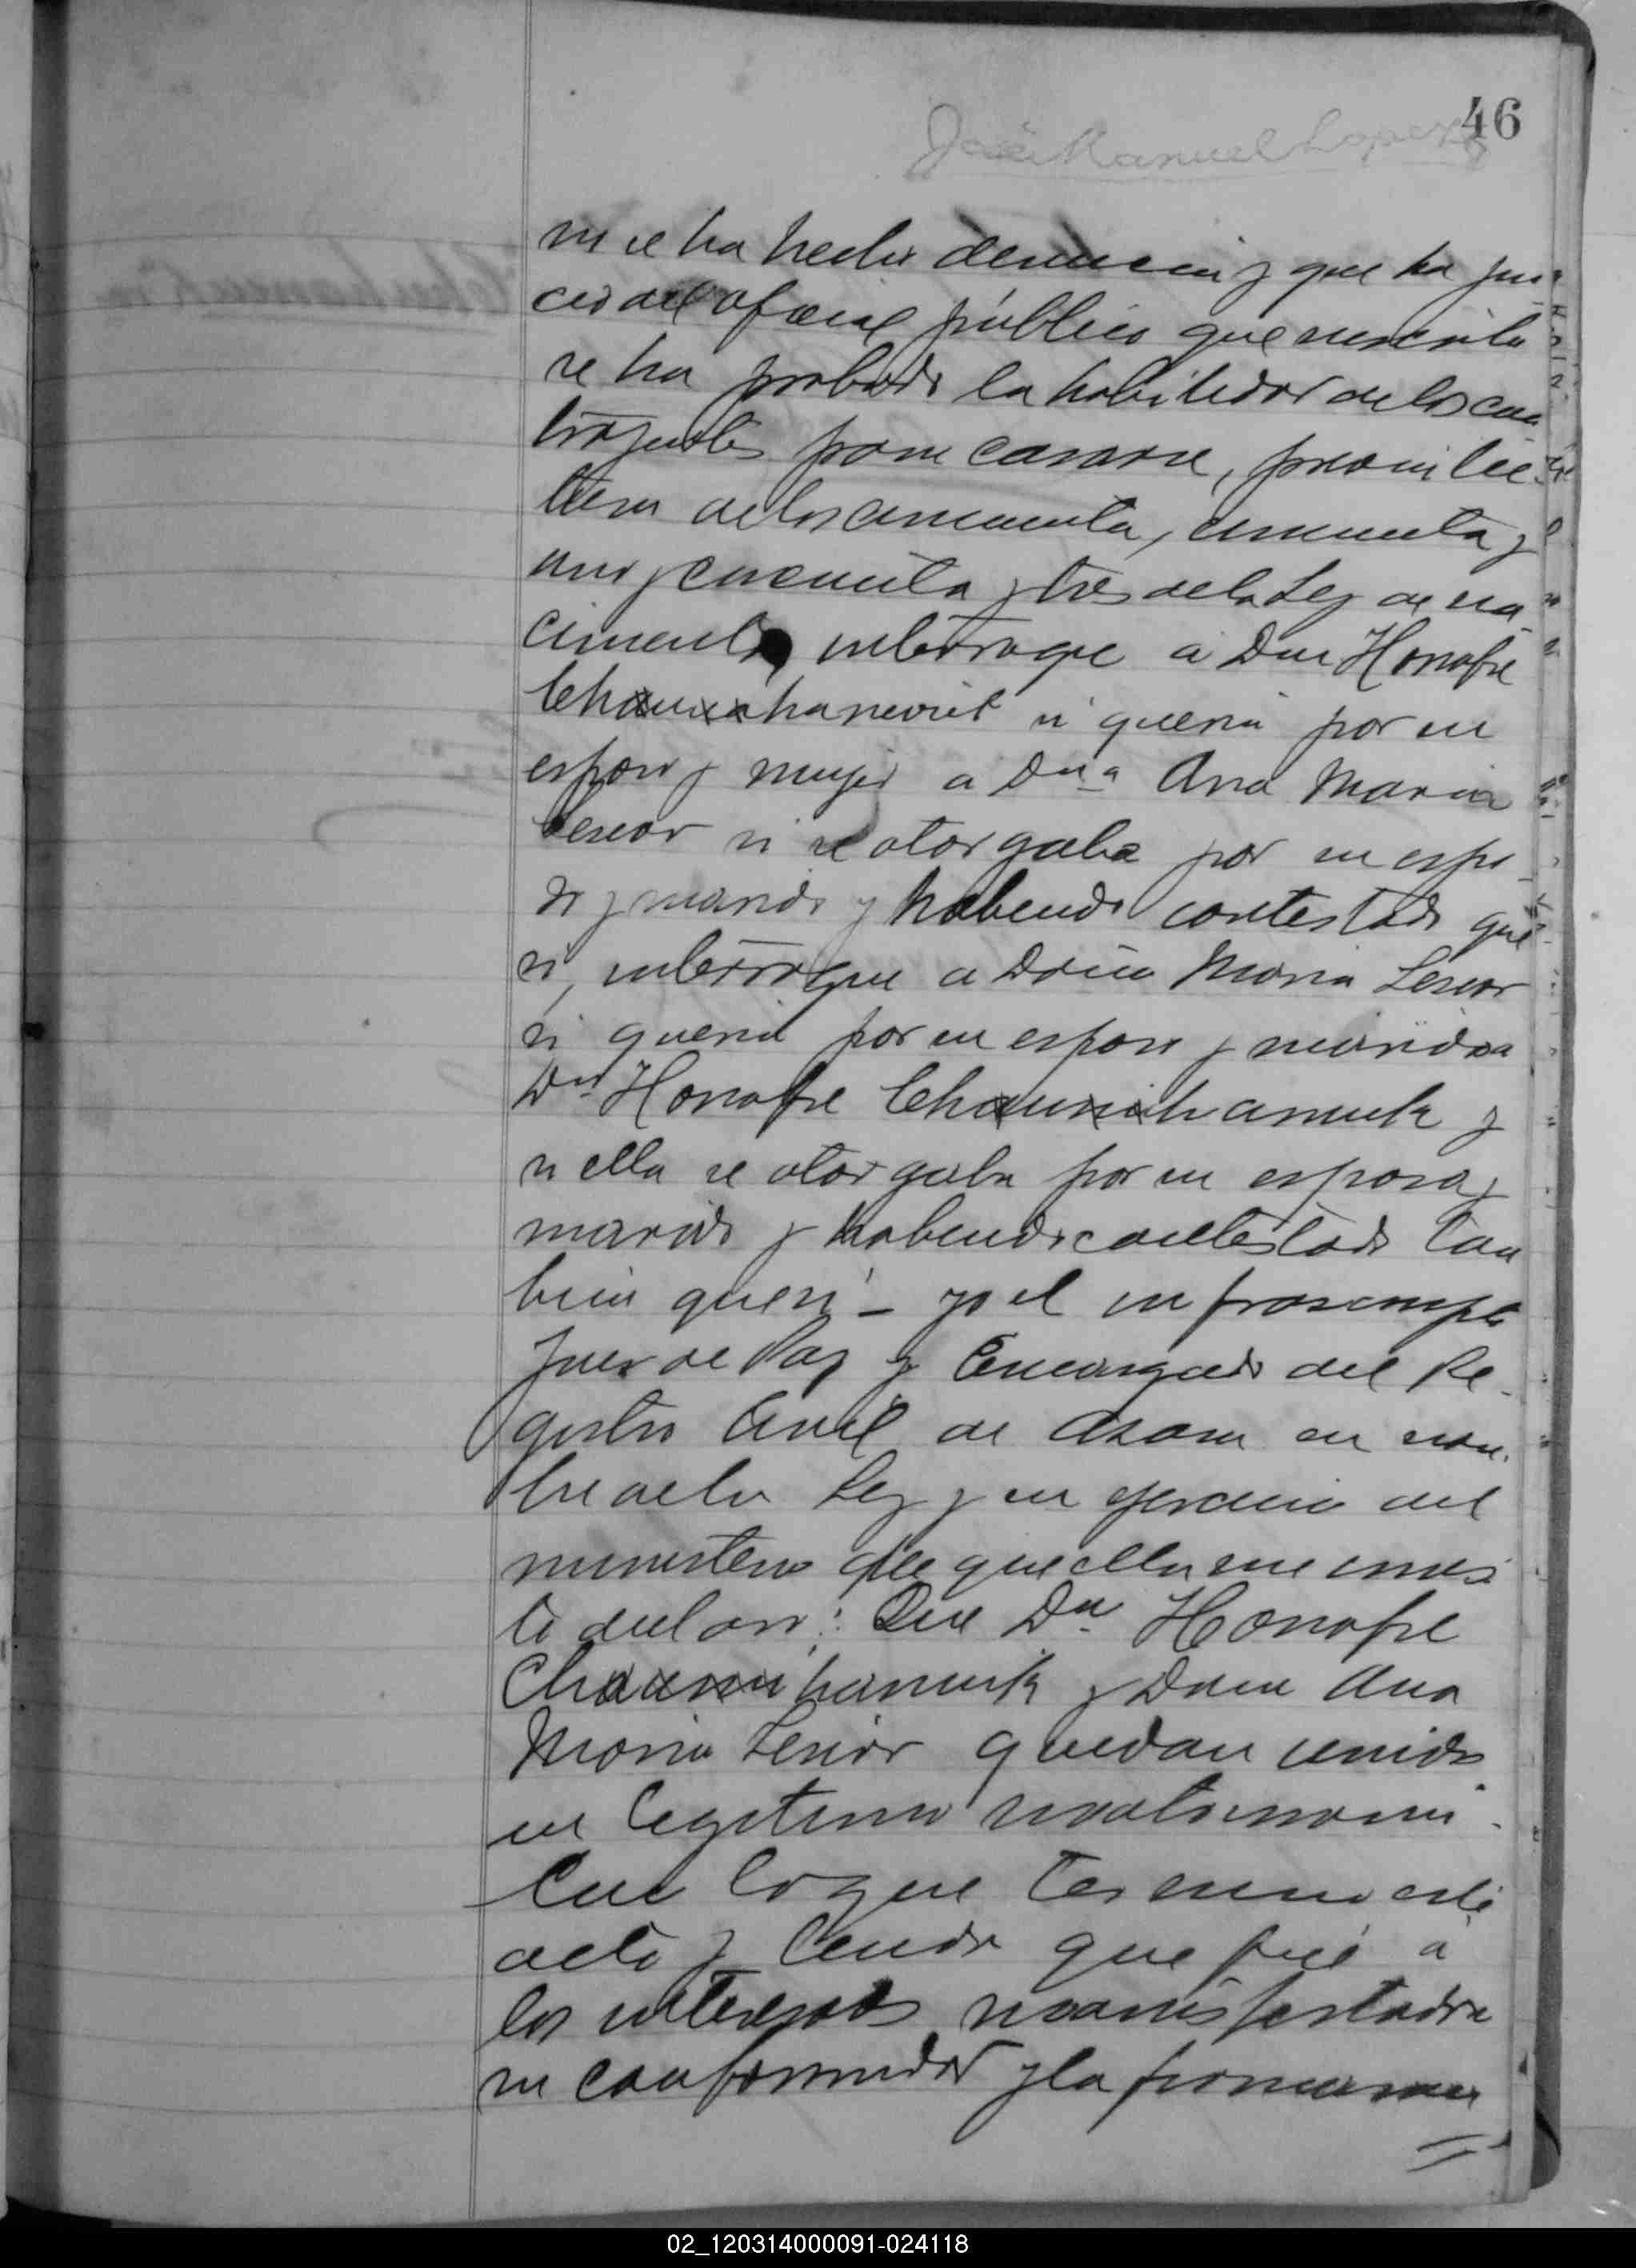 46
José Manuel Lopez
ni se ha hecho denuncia y que ha jui
cio del oficial público que suscribe
se ha probado la habilidad de los con
trayentes para casarse, previa lec
tura de los cincuenta, cincuenta y
uno y cincuenta y tres de la Ley de na
cimento, interrogue a Don Honofre
si queria por su
esposa y mujer a Dna Ana Maria
Lenor si se otorgaba por su espo
so y marido y habendo contestado que
si, interrogue a Doña Maria Lenor
si queria por su esposo y marido a
Dn Honofre y
si ella se otorgaba por su esposa y
marido y habendo contestado tan
bien que si - yo el infrascripto
Juez de Paz y Encargado del Re
gistro Civil de en nom
bre de la Ley y en ejercicio del
ministerio que ella me envis
te declaro: Que Dn Honofre
y Doña Ana
Maria Lenor quedan unidos
en legitimo matrimonio.
Con lo que termino este
acto y leida que fué a
los interesados manifestaron
su conformidad y la firmaron
02_120314000091-024118